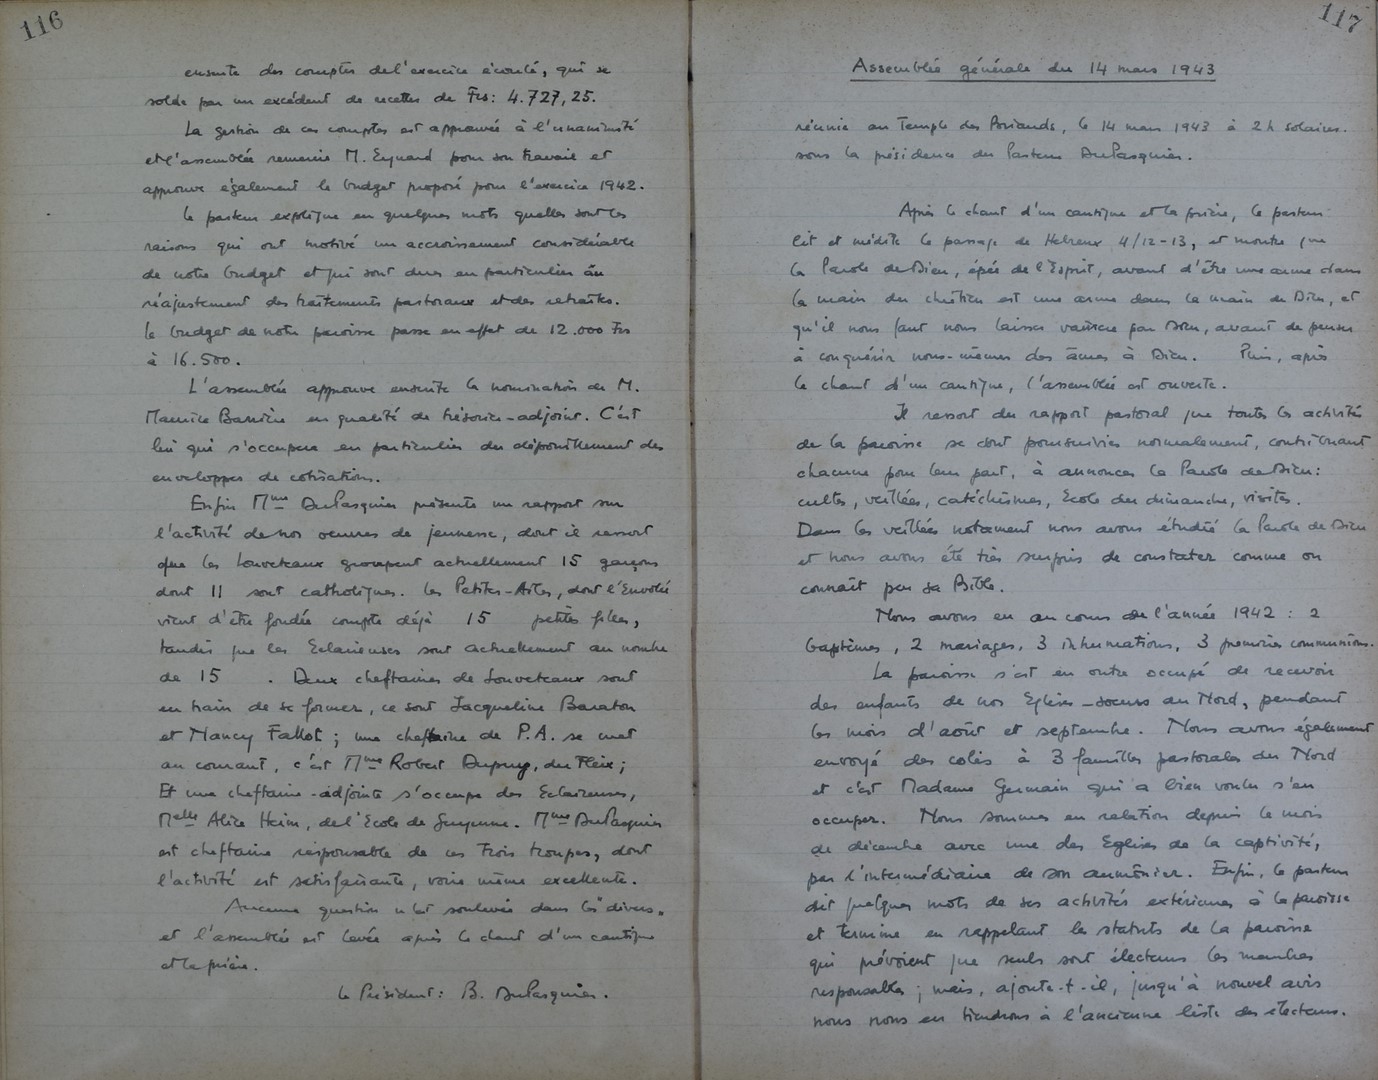 116
ensuite des comptes de l'exercice écoulé, qui se
solde par un excédent de recettes de Frs: 4.727,25.
La gestion de ces comptes est approuvée à l'unanimité
et l'assemblée remercie M. Eynard pour son travail et
approuve également le budget proposé pour l'exercice 1942.
Le pasteur explique en quelques mots quelles sont les
raisons qui ont motivé un accroissement considérable
de notre budget et qui sont dues en particulier au
réajustement des traitements pastoraux et des retraites.
Le budget de notre paroisse passe en effet de 12.000 Frs
à 16.500.
L'assemblée approuve ensuite la nomination de M.
Maurice Barrière en qualité de trésorier-adjoint. C'est
lui qui s'occupera en particulier du dépouillement des
enveloppes de cotisation.
Enfin Mme DuPasquier présente un rapport sur
l'activité de nos oeuvres de jeunesse, dont il ressort
que les Louveteaux groupent actuellement 15 garçons
dont 11 sont catholiques. Les Petites-Ailes, dont l'Envolée
vient d'être fondée compte déjà 15 petites filles,
tandis que les Eclaireuses sont actuellement au nombre
de 15 . Deux cheftaines de Louveteaux sont
en train de se former, ce sont Jacqueline Baraton
et Nancy Fallot ; une cheftaine de P.A. se met
au courant, c'est Mme Robert Dupuy, du Fleix ;
Et une cheftaine-adjointe s'occupe des Eclaireuses,
Melle Alice Heim, de l'Ecole de Guyenne. Mme DuPasquier
est cheftaine responsable de ces trois troupes, dont
l'activité est satisfaisante, voire même excellente.
Aucune question n'est soulevée dans les "divers"
et l'assemblée est levée après le chant d'un cantique
et la prière.
Le Président: B. DuPasquier.
117
Assemblée générale du 14 mars 1943
réunie au Temple des Briands, le 14 mars 1943 à 2 h solaires.
sous la présidence du Pasteur DuPasquier.
Après le chant d'un cantique et la prière, le pasteur
lit et médite le passage de Hébreux 4/12-13, et montre que
la Parole de Dieu, épée de l'Esprit, avant d'être une arme dans
la main du chrétien est une arme dans la main de Dieu, et
qu'il nous faut nous laisser vaincre par Dieu, avant de penser
à conquérir nous-mêmes des âmes à Dieu. Puis, après
le chant d'un cantique, l'assemblée est ouverte.
Il ressort du rapport pastoral que toutes les activités
de la paroisse se sont poursuivies normalement, contribuant
chacune pour leur part, à annoncer la Parole de Dieu:
cultes, veillées, catéchismes, Ecole du dimanche, visites.
Dans les veillées notament nous avons étudié la Parole de Dieu
et nous avons été très surpris de constater comme on
connaît peu sa Bible.
Nous avons eu au cours de l'année 1942 : 2
baptêmes, 2 mariages, 3 inhumations, 3 premières communions.
La paroisse s'est en outre occupé de recevoir
des enfants de nos Eglises-soeurs du Nord, pendant
les mois d'août et septembre. Nous avons également
envoyé des colis à 3 familles pastorales du Nord
et c'est Madame Germain qui a bien voulu s'en
occuper. Nous sommes en relation depuis le mois
de décembre avec une des Eglises de la captivité,
par l'intermédiaire de son aumônier. Enfin, le pasteur
dit quelques mots de ses activités extérieures à la paroisse
et termine en rappelant les statuts de la paroisse
qui prévoient que seuls sont électeurs les membres
responsables ; mais, ajoute-t-il, jusqu'à nouvel avis
nous nous en tiendrons à l'ancienne liste des électeurs.